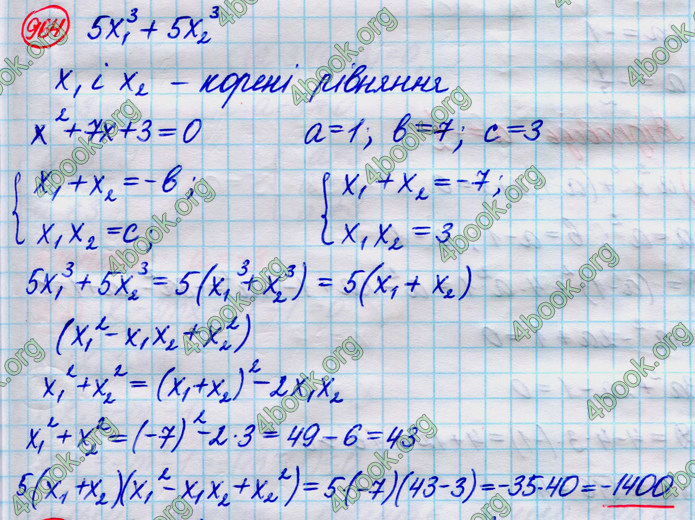 904 5x₁³ + 5x₂³
x₁ і x₂ – корені рівняння
x² + 7x + 3 = 0 a = 1; b = 7; c = 3
{ x₁ + x₂ = -b; { x₁ + x₂ = -7;
x₁x₂ = c; x₁x₂ = 3
5x₁³ + 5x₂³ = 5(x₁³ + x₂³) = 5(x₁ + x₂)
(x₁² - x₁x₂ + x₂²)
x₁² + x₂² = (x₁ + x₂)² - 2x₁x₂
x₁² + x₂² = (-7)² - 2·3 = 49 - 6 = 43
5(x₁ + x₂)(x₁² - x₁x₂ + x₂²) = 5(-7)(43-3) = -35·40 = -1400
4book.org